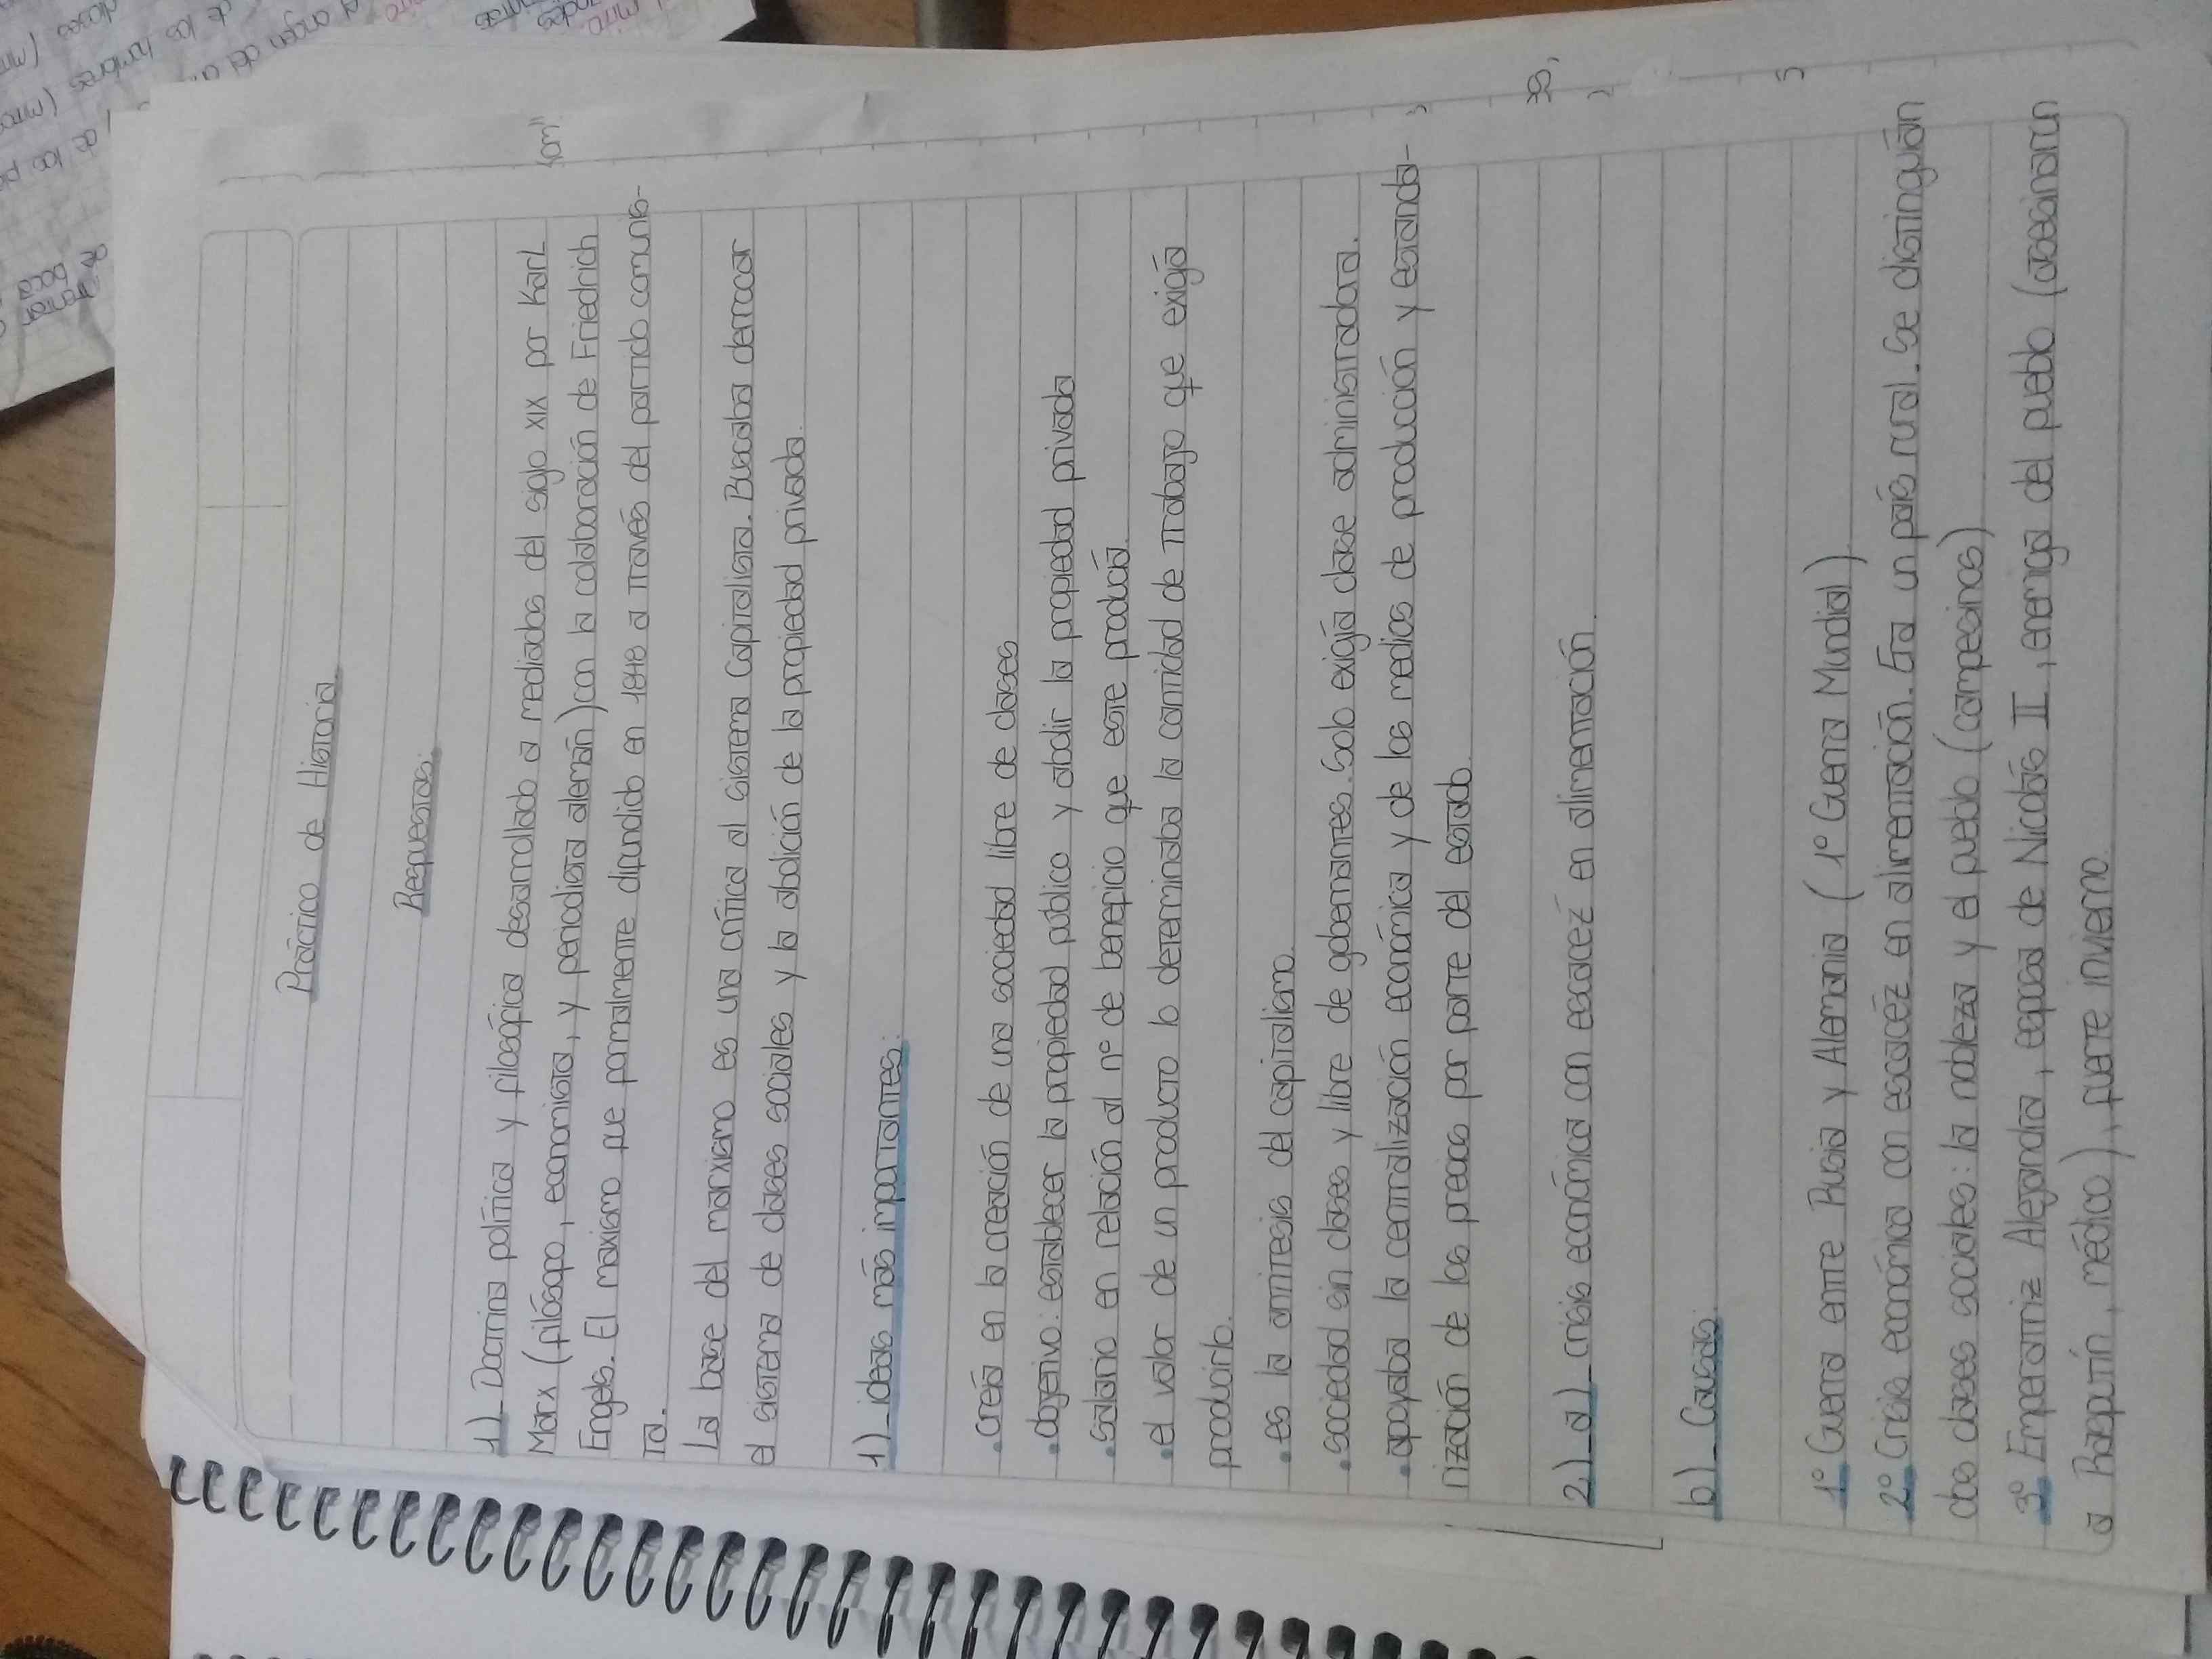 Práctico de Historia
Respuestas:
1)_ Doctrina política y filosófica desarrollado a mediados del siglo XIX por Karl
Marx (filósofo, economista, y periodista alemán) con la colaboración de Friedrich
Engels. El maxismo fue formalmente difundido en 1848 a través del partido comunis-
ta.
La base del marxismo es una crítica al sistema Capitalista. Buscaba derrocar
el sistema de clases sociales y la abolición de la propiedad privada.
1)_ ideas más importantes:
• creía en la creación de una sociedad libre de clases
• objetivo: establecer la propiedad público y abolir la propiedad privada
• salario en relación al n° de beneficio que este producía.
• el valor de un producto lo determinaba la cantidad de trabajo que exigía
producirlo.
• es la antítesis del capitalismo.
• sociedad sin clases y libre de gobernantes. Solo exigía clase administradora.
• apoyaba la centralización económica y de los medios de producción y estanda-
rización de los precios por parte del estado.
2)_ a)_ crisis económica con escacéz en alimentación.
b)_ Causas:
1° Guerra entre Rusia y Alemania (1° Guerra Mundial)
2° Crisis económica con escacéz en alimentación. Era un país rural. Se distinguían
dos clases sociales: la nobleza y el pueblo (campesinos)
3° Emperatriz Alejandra, esposa de Nicolás II, enemiga del pueblo (asesinarun
a Rasputín, médico), fuerte invierno.